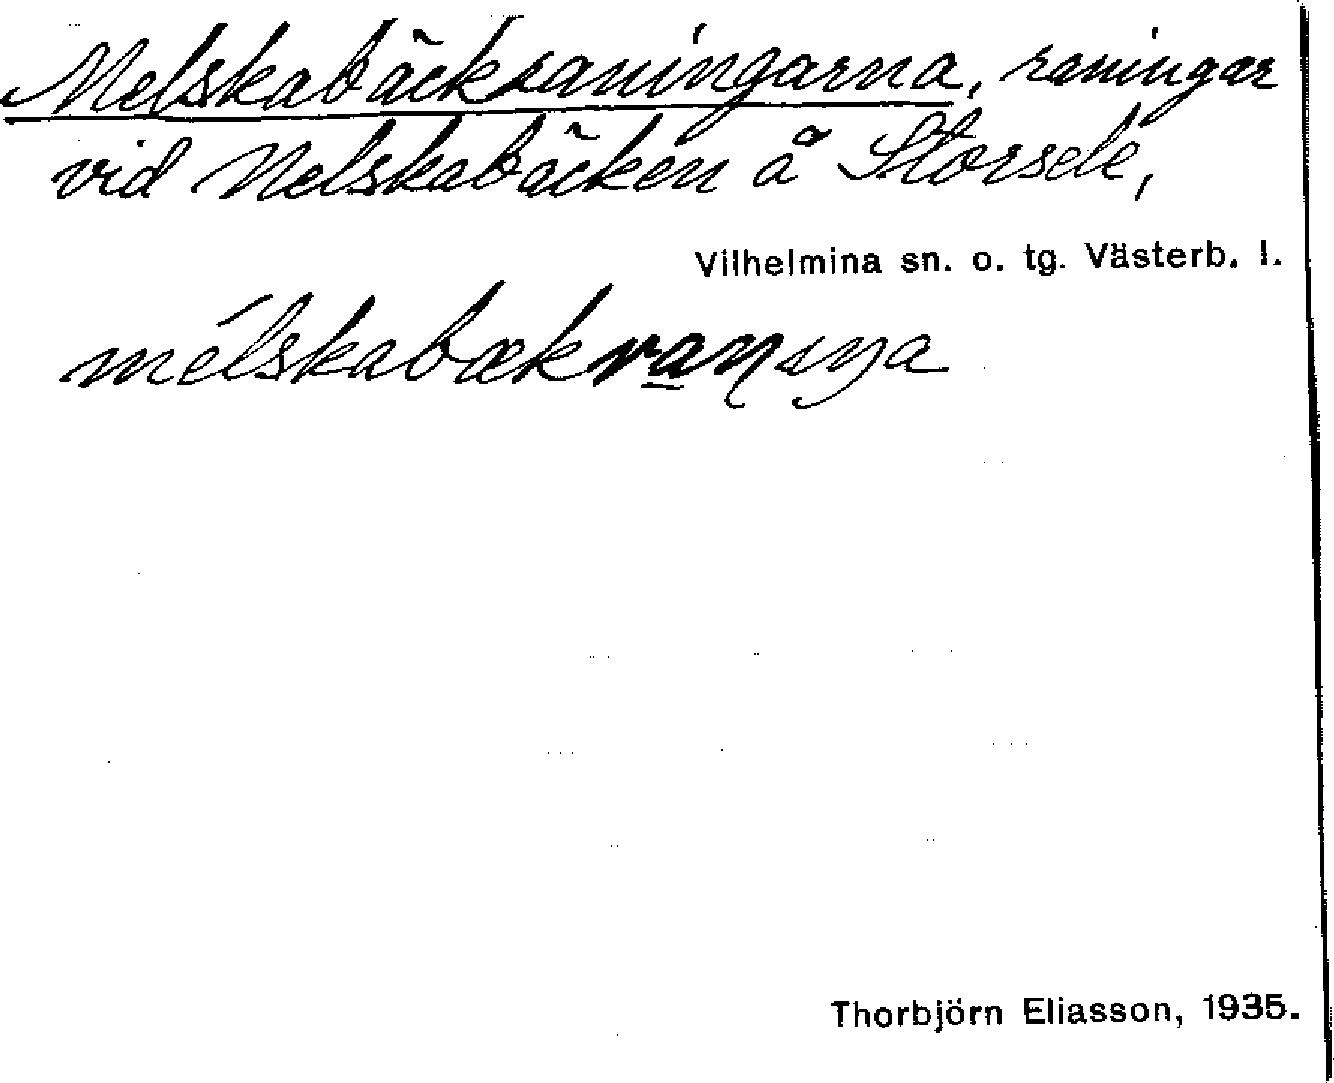 Melskabäcksraningarna, raningar
vid Melskabäcken å Storsele,
Vilhelmina sn. o. tg. Västerb. l.
mélskabækraniŋa
Thorbjörn Eliasson, 1935.